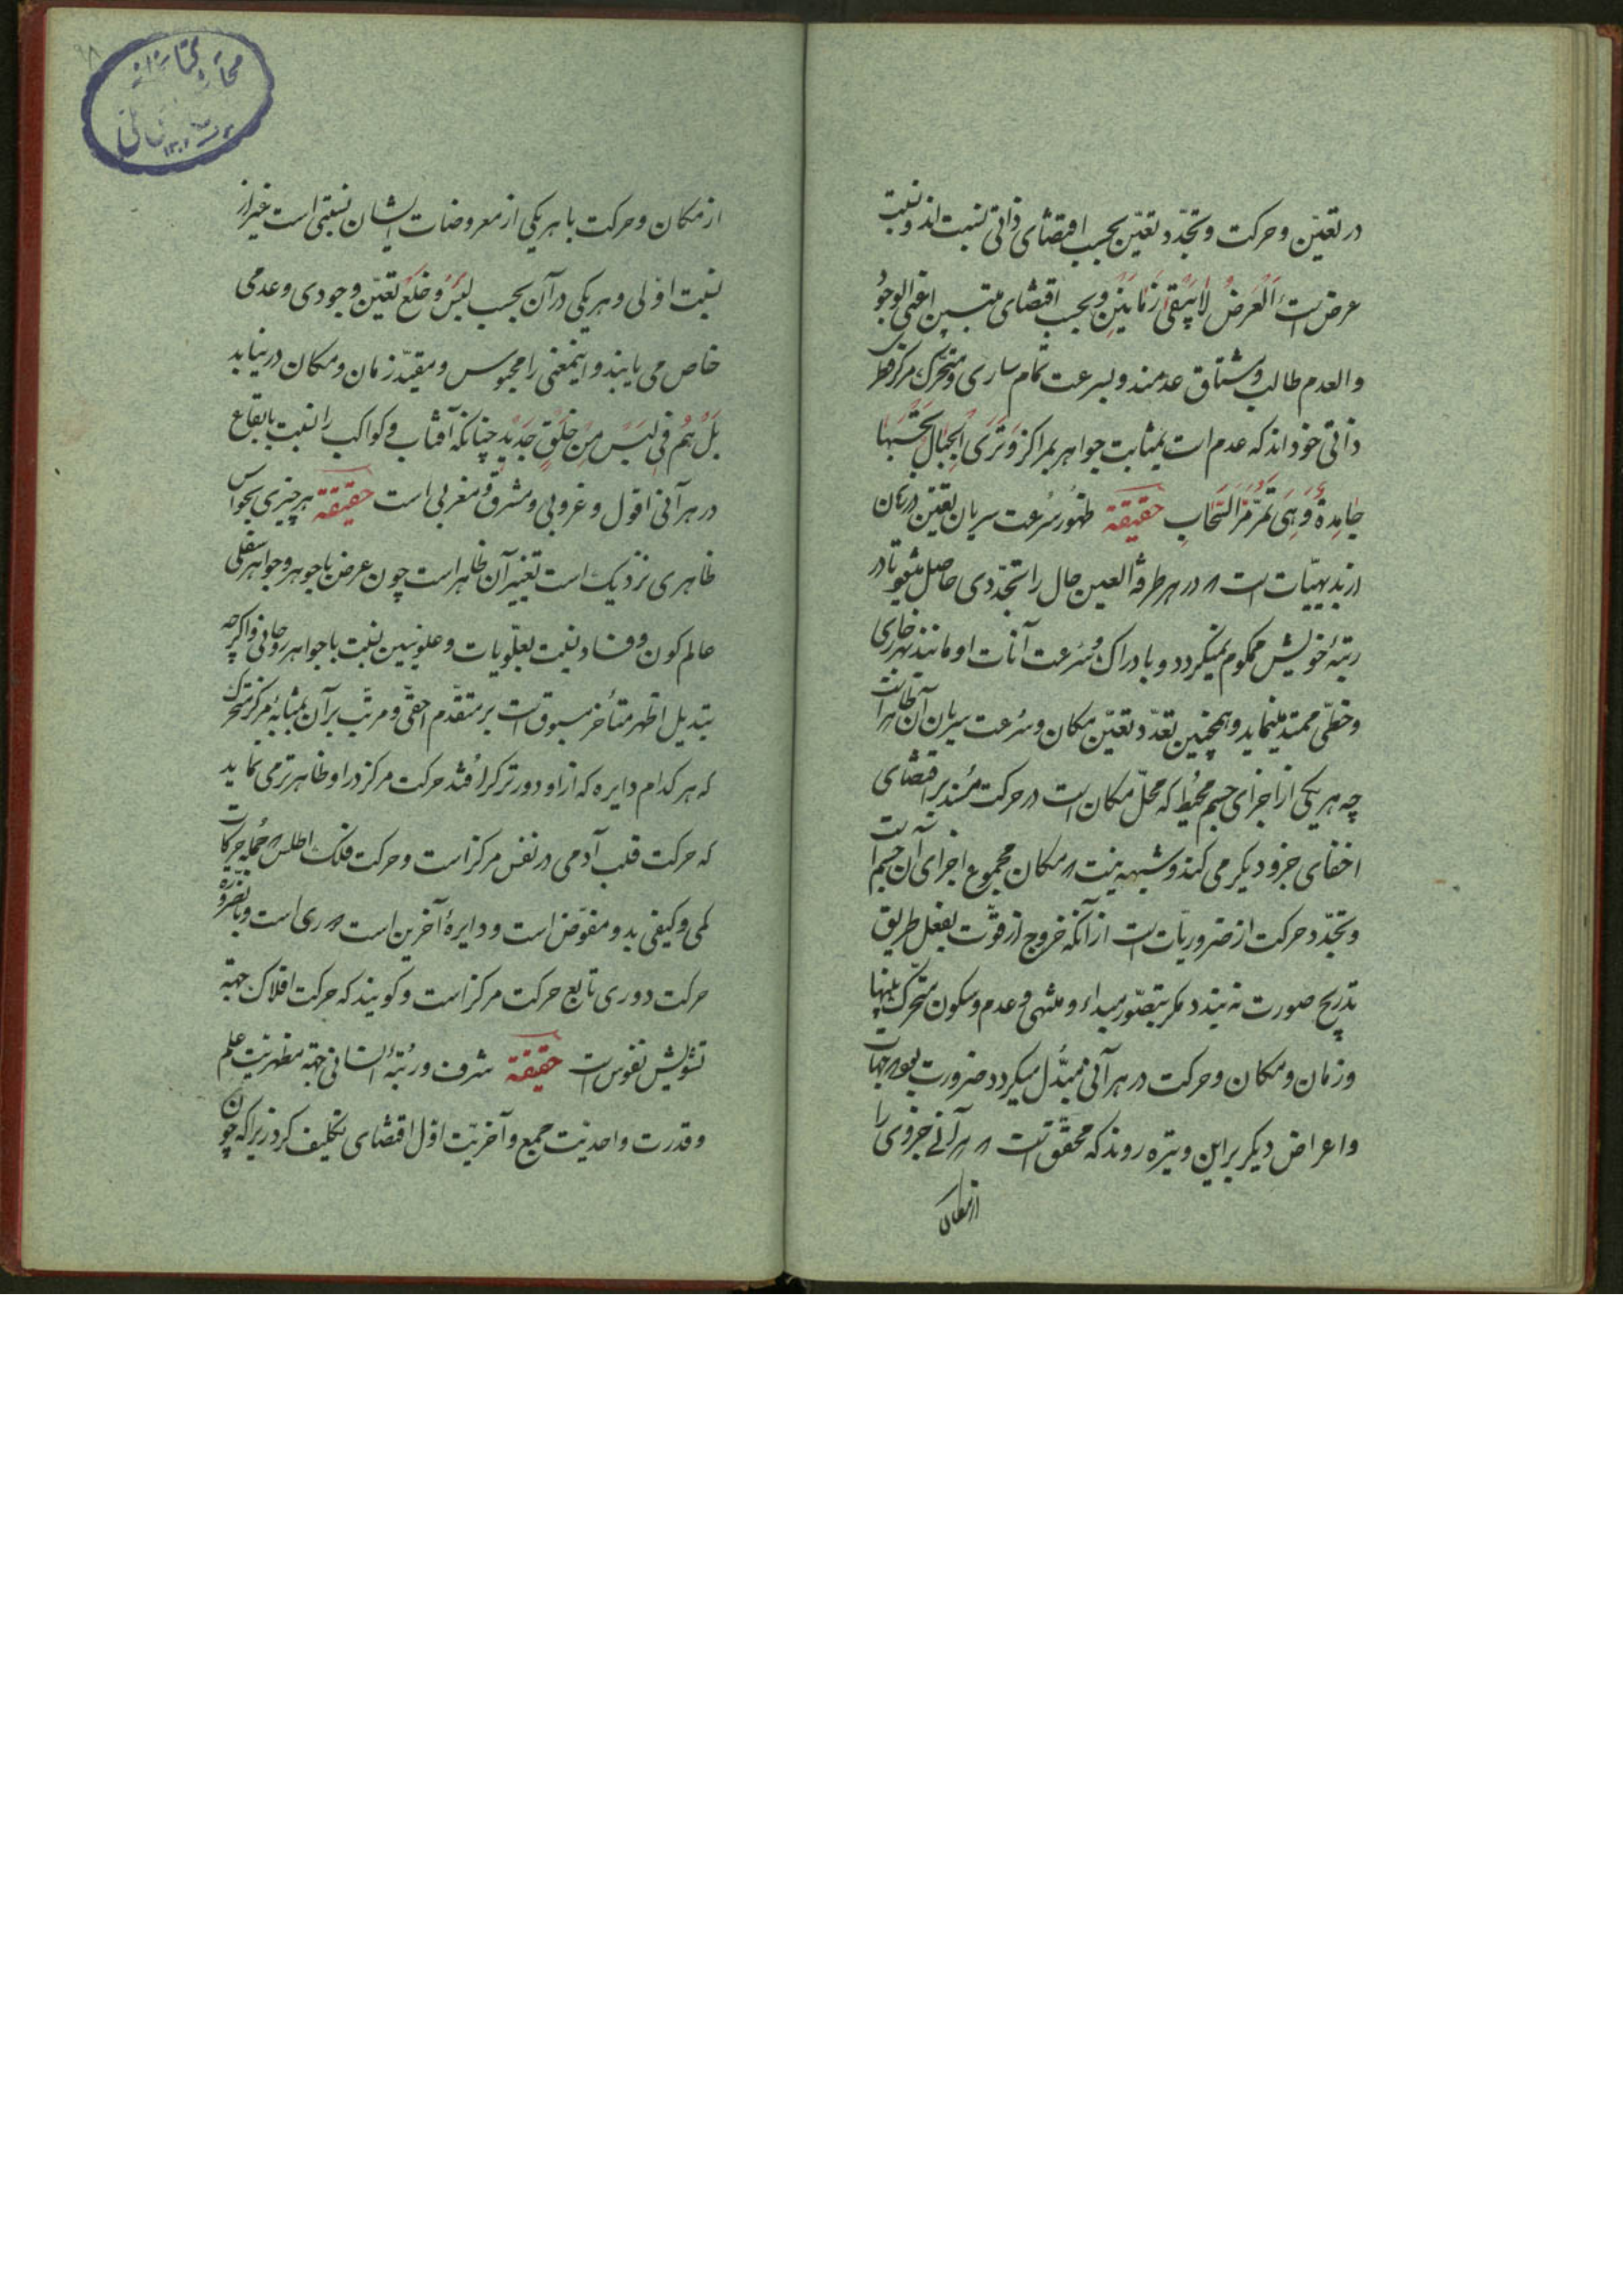 در تعیّن و حرکت و تجدّد تعیّن بحسب اقتضای ذاتی نسبت‌اند و نسبت
عرض است اَلْعَرَضُ لٰایَبْقیٰ زَمانَیْنِ و بحسب اقتضای منتسبین اعنی الوجود
والعدم طالب و مشتاق عدمند و بسرعت تمام ساری و متحرک مرکز
ذاتی خوداند که عدم است بمثابت جواهر بمراکز وَتَرَی الْجِبٰالَ تَحْسَبُهٰا
جٰامِدَةً وَهِیَ تَمُرُّ مَرَّ السَّحٰابِ حقیقة ظهور سُرعت سریان تعیّن در زمان
از بدیهیّات است که در هر طرفة العین حال را تجدّدی حاصل میشود تا در
رتبهٔ خویش محکوم نمیگردد و با دراک و سُرعت آنات او مانند نهر جاری
و خطّی ممتد مینماید و همچنین تعدّد تعیّن مکان و سُرعت سریان آن ظاهر است
چه هر یکی از اجزای جسم محیط که محلّ مکان است در حرکت مُسند بر اقتضای
اخفای جزو دیگر می کند و شبهه نیست که مکان مجموع اجزای آن جسم است
و تجدّد حرکت از ضروریّات است از آنکه خروج از قوّت بفعل طریق
تدریج صورت نه بندد مگر بتصوّر مبداء و منتهی و عدم و سکون متحرّک بینها
و زمان و مکان و حرکت در هر آنی مبتدّل میگردد ضرورت بود که جهات
و اعراض دیگر براین وتیره روند که محقّق است که هر آنی جزوی را
از مکان
از مکان و حرکت با هر یکی از معروضات ایشان نسبتی است غیر از
نسبت اوّلی و هر یکی در آن بحسب لبس و خلع تعیّن وجودی و عدمی
خاص می یابند و اینمعنی را محبوس و مقیّد زمان و مکان در نیابد
بَلْ هُم فی لَبْسٍ مِنْ خَلْقٍ جَدیْدٍ چنانکه آفتاب و کواکب را نسبت با بقاع
در هر آنی افول و غروبی و مشرق و مغربی است حقیقة هر چیزی بحواس
ظاهری نزدیک است تغییر آن ظاهر است چون عرض با جوهر و جواهر سفلی
عالم کون و فساد بنسبت بعلویات و علویین بنسبت با جواهر روحانی و اگرچه
تبدیل اظهر متأخر مسبوق است بر متقدّم اخفی و مرتّب بر آن بمثابهٔ مرکز متحرّک
که هر کدام دایره که از او دورتر گر افتد حرکت مرکز در او ظاهرتر می نماید
که حرکت قلب آدمی در نفس مرکز است و حرکت فلک اطلس که جمله حرکات
کمی و کیفی بدو مفوّض است و دایرهٔ آخرین است که ری است و بالضرورة
حرکت دوری تابع حرکت مرکز است و گویند که حرکت افلاک جهة
تشویش نفوس است حقیقة شرف و رُتبهٔ انسانی جهة مظهریّت علم
و قدرت و احدیّت جمع و آخریّت اوّل اقتضای تکلیف کرد زیرا که چون